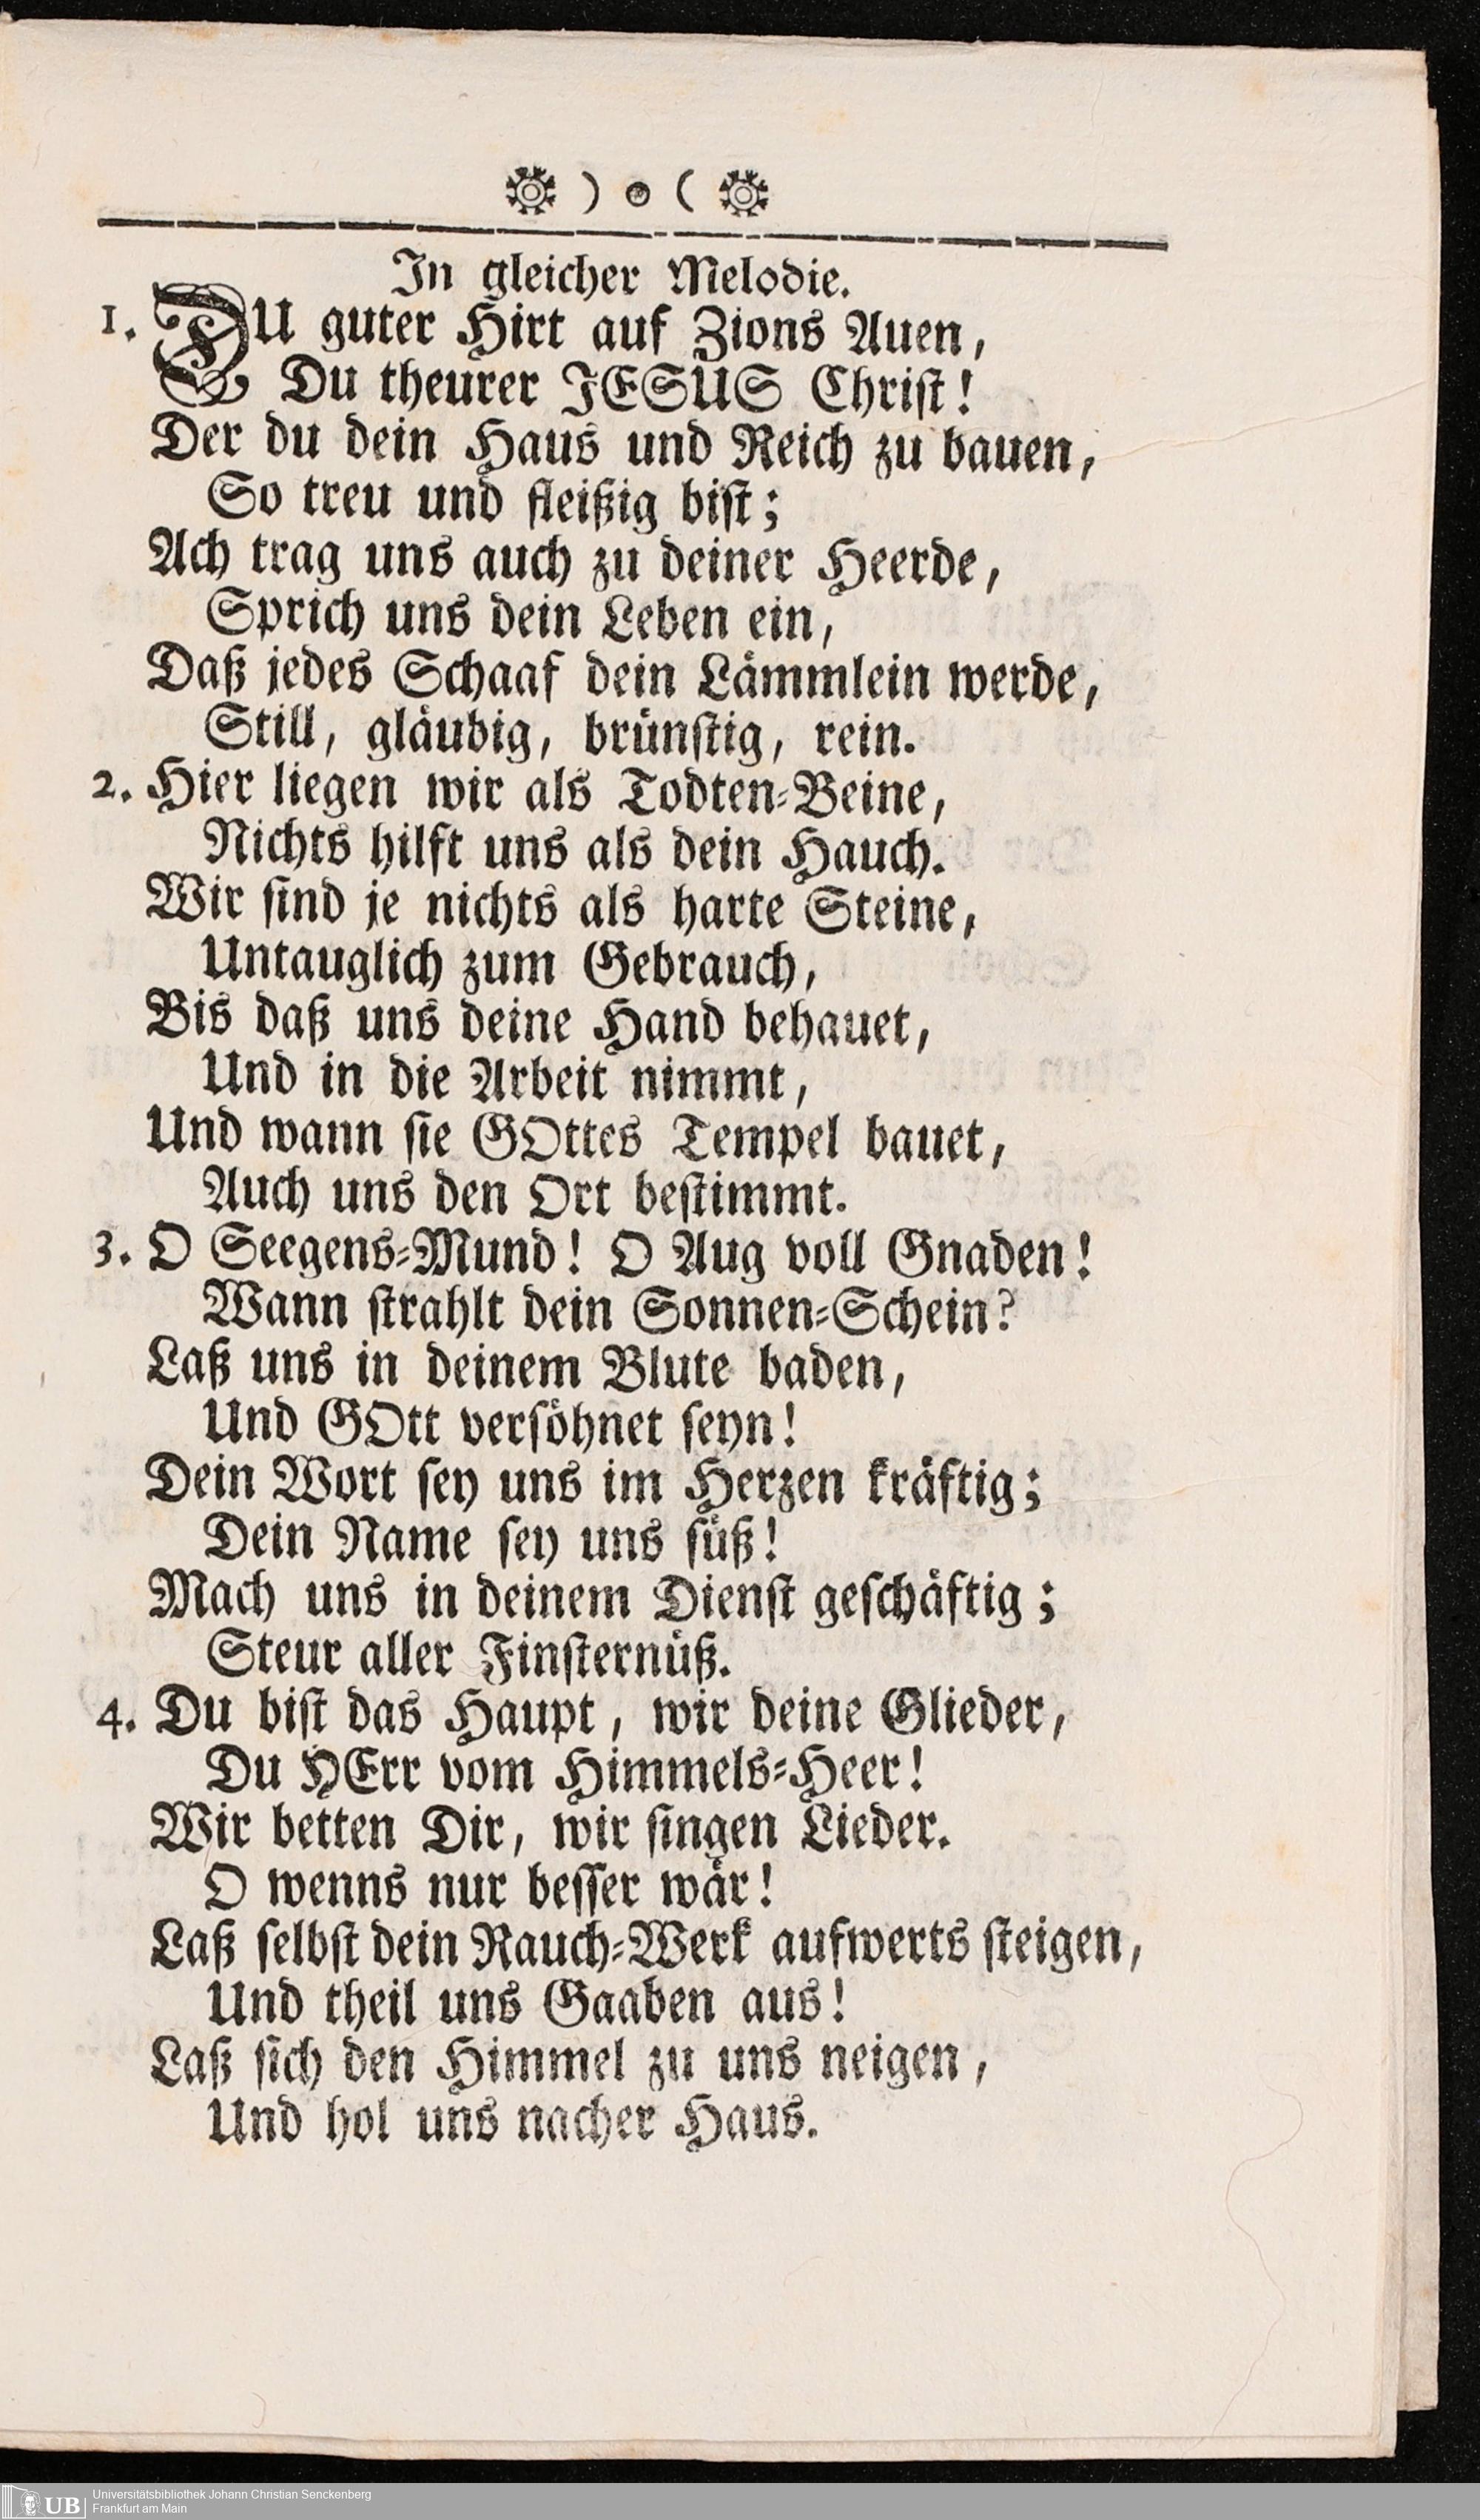 ) o (
In gleicher Melodie.
1. DU guter Hirt auf Zions Auen,
Du theurer JESUS Christ!
Der du dein Haus und Reich zu bauen,
So treu und fleißig bist;
Ach trag uns auch zu deiner Heerde,
Sprich uns dein Leben ein,
Daß jedes Schaaf dein Lämmlein werde,
Still, gläubig, brünstig, rein.
2. Hier liegen wir als Todten-Beine,
Nichts hilft uns als dein Hauch.
Wir sind je nichts als harte Steine,
Untauglich zum Gebrauch,
Bis daß uns deine Hand behauet,
Und in die Arbeit nimmt,
Und wann sie GOttes Tempel bauet,
Auch uns den Ort bestimmt.
3. O Seegens-Mund! O Aug voll Gnaden!
Wann strahlt dein Sonnen-Schein?
Laß uns in deinem Blute baden,
Und GOtt versöhnet seyn!
Dein Wort sey uns im Herzen kräftig;
Dein Name sey uns süß!
Mach uns in deinem Dienst geschäftig;
Steur aller Finsternüß.
4. Du bist das Haupt, wir deine Glieder,
Du HErr vom Himmels-Heer!
Wir betten Dir, wir singen Lieder.
O wenns nur besser wär!
Laß selbst dein Rauch-Werk aufwerts steigen,
Und theil uns Gaaben aus!
Laß sich den Himmel zu uns neigen,
Und hol uns nacher Haus.
UB
Universitätsbibliothek Johann Christian Senckenberg
Frankfurt am Main